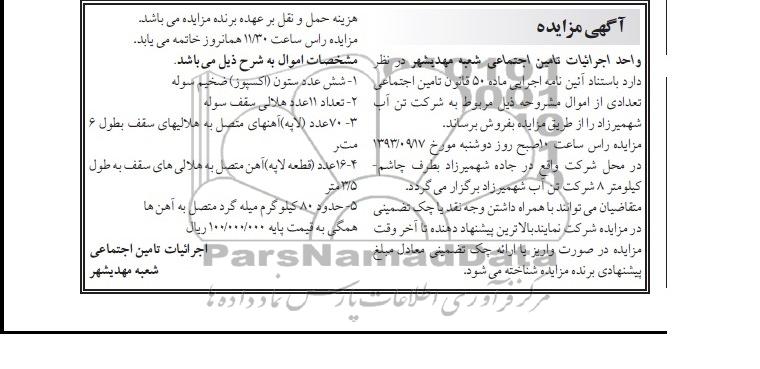 آگهی مزایده
واحد اجرائیات تامین اجتماعی شعبه مهدیشهر در نظر
دارد باستناد آئین نامه اجرایی ماده ۵۰ قانون تامین اجتماعی
تعدادی از اموال مشروحه ذیل مربوط به شرکت تن آب
شهمیرزاد را از طریق مزایده بفروش برساند.
مزایده راس ساعت ۱۰صبح روز دوشنبه مورخ ۱۳۹۳/۰۹/۱۷
در محل شرکت واقع در جاده شهمیرزاد بطرف چاشم-
کیلومتر ۸ شرکت تن آب شهمیرزاد برگزار می گردد.
متقاضیان می توانند با همراه داشتن وجه نقد یا چک تضمینی
در مزایده شرکت نمایندبالاترین پیشنهاد دهنده تا آخر وقت
مزایده در صورت واریز یا ارائه چک تضمینی معادل مبلغ
پیشنهادی برنده مزایده شناخته می شود.
هزینه حمل و نقل بر عهده برنده مزایده می باشد.
مزایده راس ساعت ۱۱/۳۰ همانروز خاتمه می یابد.
مشخصات اموال به شرح ذیل می باشد.
۱-شش عدد ستون (اکسپوز) ضخیم سوله
۲- تعداد ۱۱عدد هلالی سقف سوله
۳- ۷۰عدد (لاپه)آهنهای متصل به هلالیهای سقف بطول ۶
متر
۴-۱۶عدد (قطعه لاپه)آهن متصل به هلالی های سقف به طول
۳/۵متر
۵-حدود ۸۰ کیلو گرم میله گرد متصل به آهن ها
همگی به قیمت پایه ۱۰۰/۰۰۰/۰۰۰ ریال
اجرائیات تامین اجتماعی
شعبه مهدیشهر
ParsNamadData
مرکز فرآوری اطلاعات پارس نماد داده ها